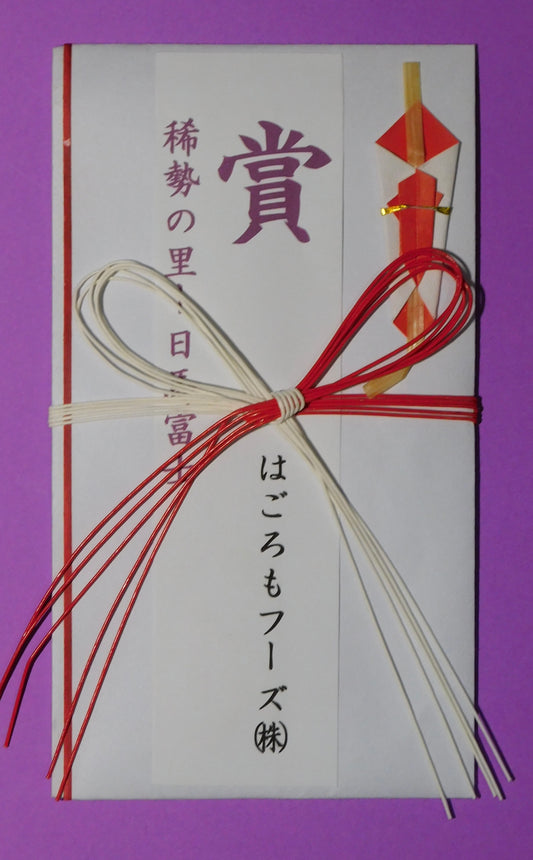 賞
はごろもフーズ㈱
稀勢の里・日馬富士